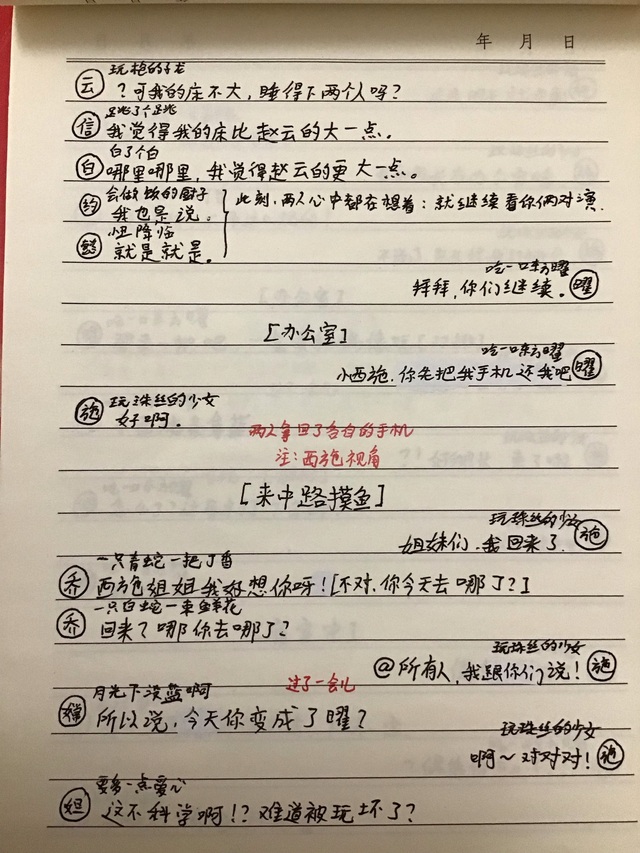 年 月 日
玩枪的子龙
云 ?可我的床不大,睡得下两个人吗?
跳了个跳
信 我觉得我的床比赵云的大一点。
白了个白
白 哪里哪里,我觉得赵云的更大一点。
会做饭的厨子
约 我也是说。
此刻,两人心中都在想着:就继续看你俩对演.
忸降临
就是就是.
吃一口来方曜
拜拜,你们继续. 曜
[办公室]
吃一口来方曜
小西施.你先把我手机还我吧 曜
玩珠丝的少女
施 好啊.
两人拿回了各自的手机
注:西施视角
[来中路摸鱼]
玩珠丝的少女
姐妹们.我回来了. 施
一只青蛇一把丁香
乔 西施姐姐我好想你呀![不对.你今天去哪了?]
一只白蛇一束鲜花
乔 回来?哪你去哪了?
玩珠丝的少女
@所有人,我跟你们说! 施
过了一会儿
月光下没蓝啊
所以说,今天你变成了曜?
玩珠丝的少女
啊~对对对! 施
要多一点爱心
妲 这不科学啊!?难道被玩坏了?